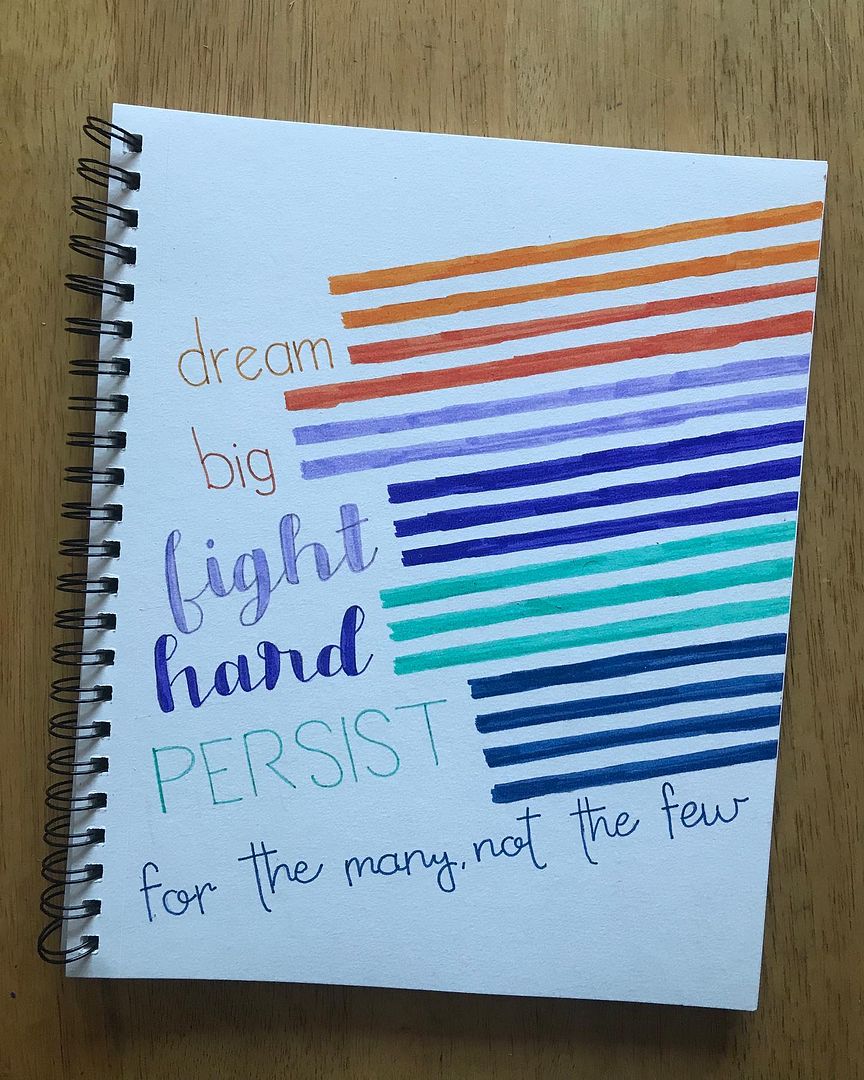 dream
big
fight
hard
PERSIST
for the many, not the few